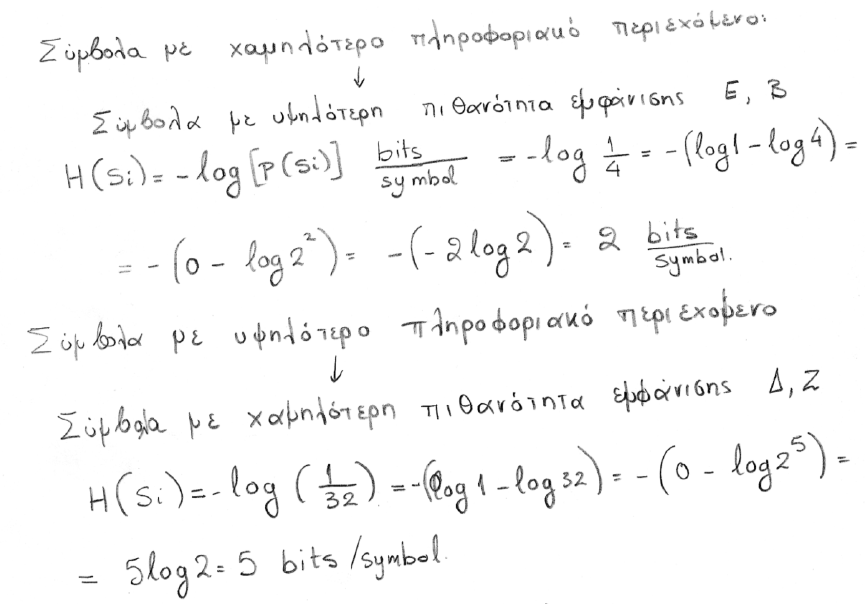 Σύμβολα με χαμηλότερο πληροφοριακό περιεχόμενο:
↓
Σύμβολα με υψηλότερη πιθανότητα εμφάνισης Ε, Β
H(Si) = -log[P(Si)] bits/symbol = -log 1/4 = -(log1 - log4) =
= -(0 - log2²) = -(-2log2) = 2 bits/symbol.
Σύμβολα με υψηλότερο πληροφοριακό περιεχόμενο
↓
Σύμβολα με χαμηλότερη πιθανότητα εμφάνισης Δ, Ζ
H(Si) = -log(1/32) = -(log1 - log32) = -(0 - log2⁵) =
= 5log2 = 5 bits/symbol.